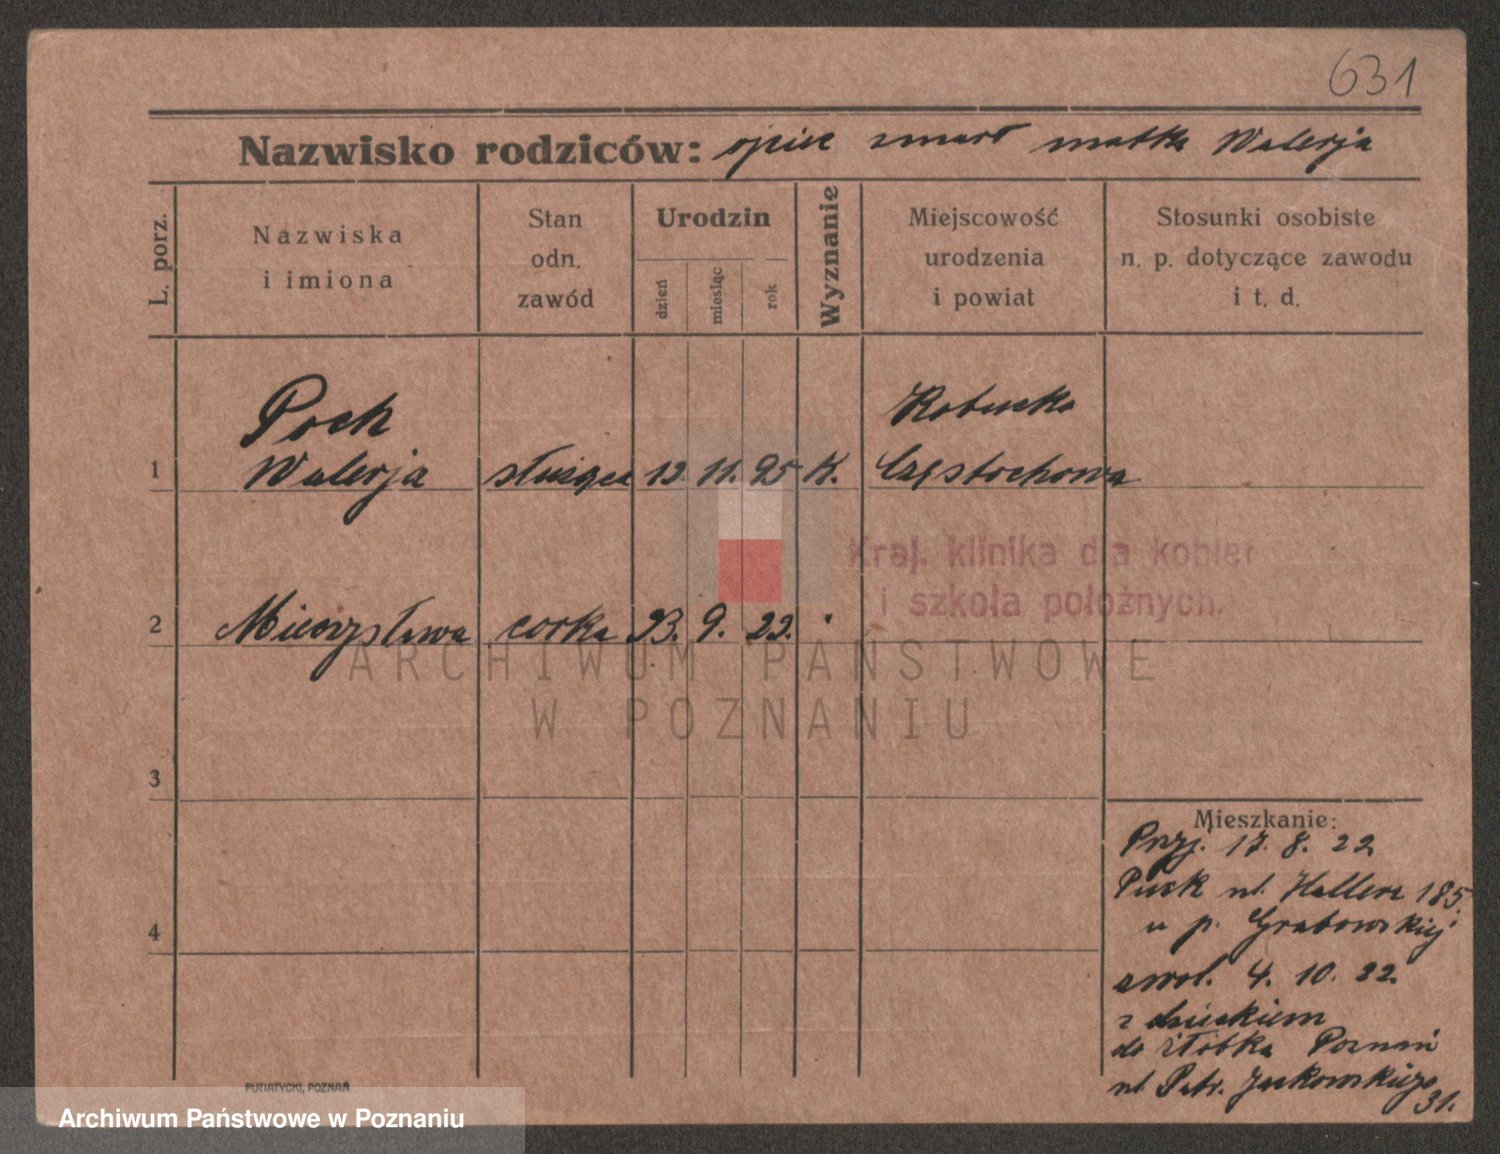 631
Nazwisko rodziców: ojciec zmarł matka Walerja
L. porz.
Nazwiska
i imiona
Stan
odn.
zawód
Urodzin
dzień
miesiąc
rok
Wyznanie
Miejscowość
urodzenia
i powiat
Stosunki osobiste
n. p. dotyczące zawodu
i t. d.
Pock
1 Walerja służąca 12. 11. 95 K. Częstochowa
Kraj. klinika dla kobiet
i szkoła położnych.
2 Mieczysława corka 23. 9. 22.
ARCHIWUM PAŃSTWOWE
W POZNANIU
3
4
Mieszkanie:
Przj. 17. 8. 22
Puck ul. Hallera 185.
u p. Grabowskiej
zwol. 4. 10. 22.
z dzieckiem
do żłobka Poznań
ul. Patr. Jackowskiego
31.
PUTIATYCKI, POZNAŃ
Archiwum Państwowe w Poznaniu